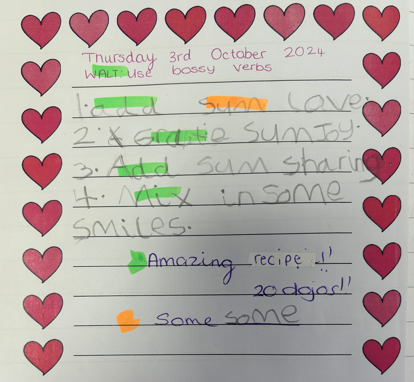 Thursday 3rd October 2024
WALT: Use bossy verbs
1. add sum love.
2. grate sum joy.
3. Add sum sharing
4. Mix in some
smiles.
Amazing recipe!!
20 dojos!!
Some some